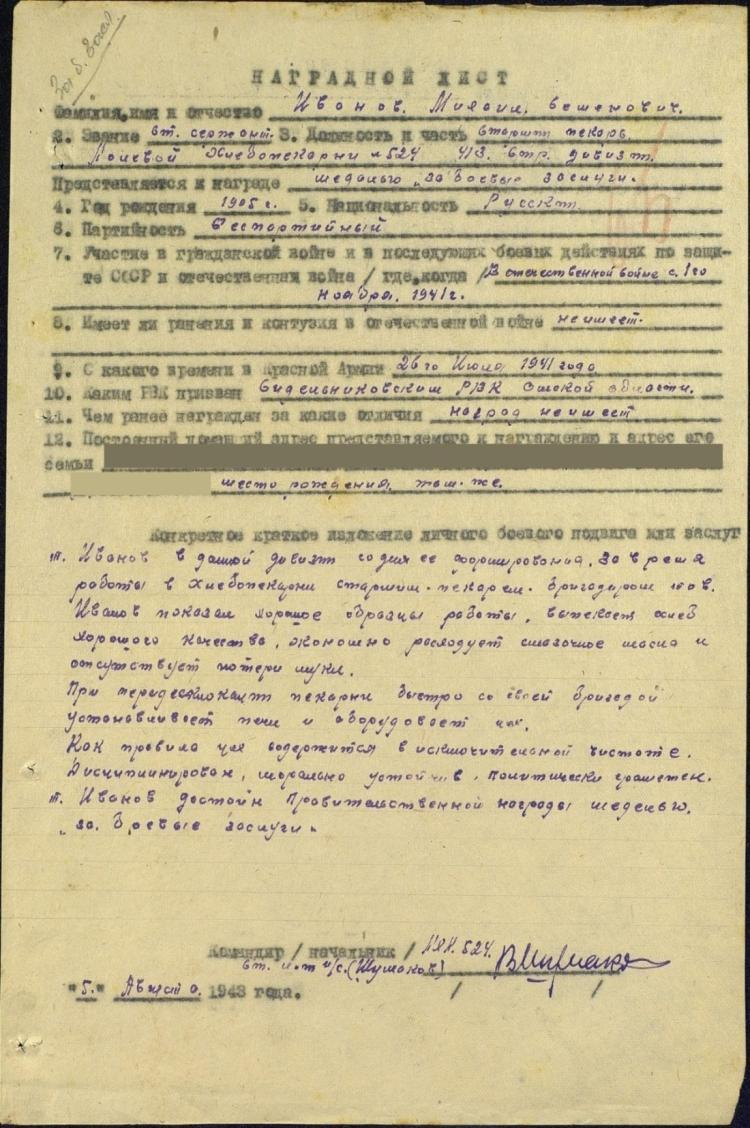 За б. Засл.
НАГРАДНОЙ ЛИСТ
Фамилия, имя и отчество Иванов. Михаил. Семенович.
2. Звание ст. сержант. 3. Должность и часть старший пекарь.
Полевой Хлебопекарни № 524 413. стр. дивизии.
Представляется к награде медалью „за боевые заслуги".
4. Год рождения 1905 г. 5. Национальность Русский.
6. Партийность Беспартийный
7. Участие в гражданской войне и в последующих боевых действиях по защи-
те СССР и отечественная война / где, когда / В отечественной войне с. 1 го
ноября. 1941 г.
8. Имеет ли ранения и контузия в отечественной войне не имеет.
9. С какого времени в Красной Армии 26 го Июля 1941 года
10. Каким РВК призван Седельниковским РВК Омской области.
11. Чем ранее награжден за какие отличия наград не имеет
12. Постоянный домашний адрес представляемого к награждению и адрес его
семьи
место рождения, там-же.
Конкретное краткое изложение личного боевого подвига или заслуг
т. Иванов в данной дивизии со дня ее формирования. За время
работы в Хлебопекарни старшим-пекарем-бригадиром тов.
Иванов показал хорошие образцы работы, выпекает хлеб
хорошого качества, экономно расходует смазочное масло и
отсутствует потери муки.
При передеслокации пекарни быстро со своей бригадой
устанавливает печи и оборудовает их.
Как правила цех содержится в исключительной чистоте.
Дисциплинирован, морально устойчив, политически грамотен.
т. Иванов достоин Правительственной награды медалью.
„за. Боевые заслуги"
Командир / начальник / ПАХ. 524.
ст. л-т и/с. (Шумаков)
"5." Августа. 1943 года. / /